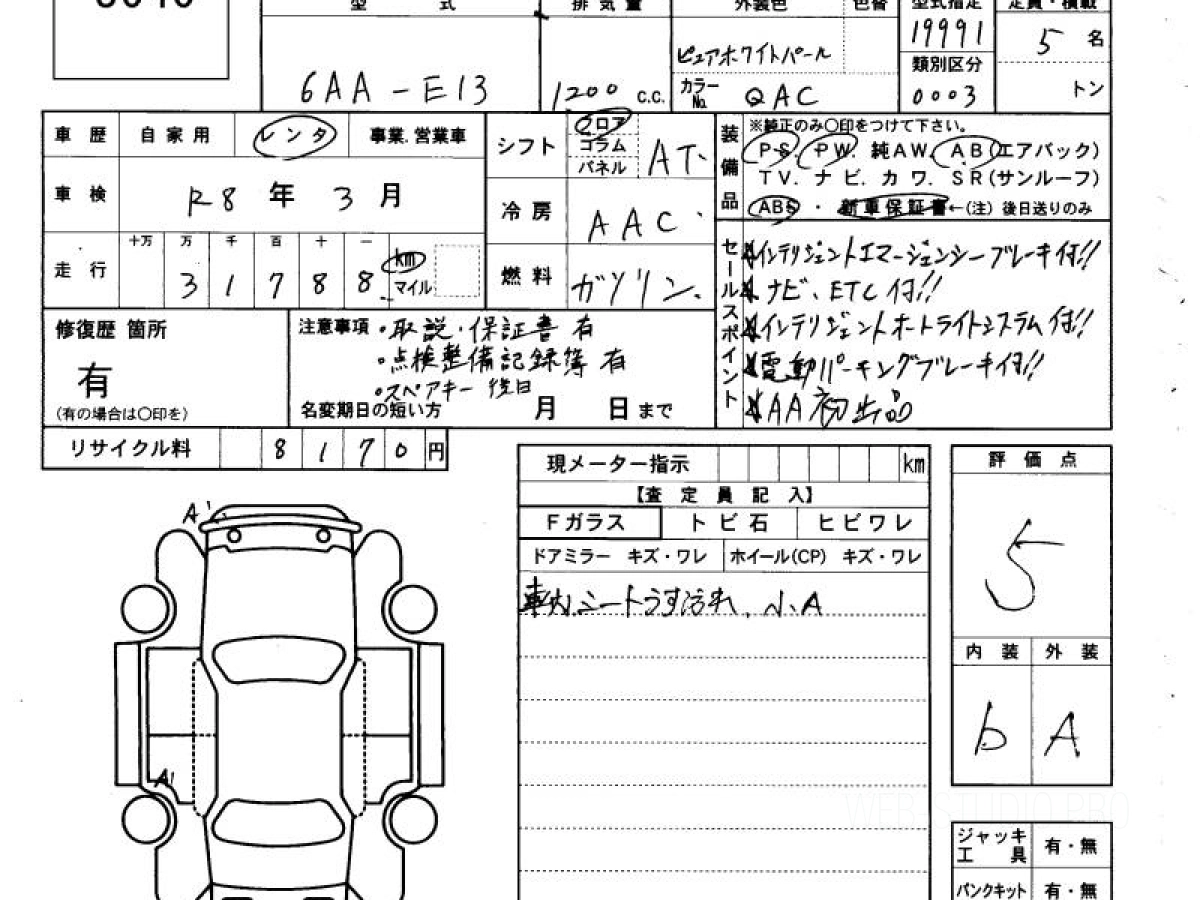 型 式
排気量
外装色
色替
型式指定
定員・積載
6AA-E13
1200 C.C.
ピュアホワイトパール
カラーNo. QAC
19991
類別区分
0003
5 名
トン
車歴 自家用 レンタ 事業.営業車
車検 R8年3月
十万 万 千 百 十 一
走行 31788 km マイル
シフト フロア コラム パネル AT.
冷房 AAC
燃料 ガソリン.
装備品
※純正のみ〇印をつけて下さい。
PS. PW. 純AW. AB(エアバック)
TV. ナビ. カワ. SR(サンルーフ)
ABS・新車保証書←(注) 後日送りのみ
セールスポイント
インテリジェントエマージェンシーブレーキ付!!
ナビ、ETC付!!
インテリジェントオートライトシステム付!!
電動パーキングブレーキ付!!
AA初出品
修復歴 箇所
有
(有の場合は〇印を)
注意事項 ・取説・保証書 有
・点検整備記録簿 有
・スペアキー 後日
名変期日の短い方 月 日まで
リサイクル料 8170円
現メーター指示 km
【査定員記入】
Fガラス トビ石 ヒビワレ
ドアミラー キズ・ワレ ホイール(CP) キズ・ワレ
車内シートうす汚れ、小A
評価点
5
内装 外装
b A
A1
ジャッキ工具 有・無
パンクキット 有・無
WEB STUDIO PRO